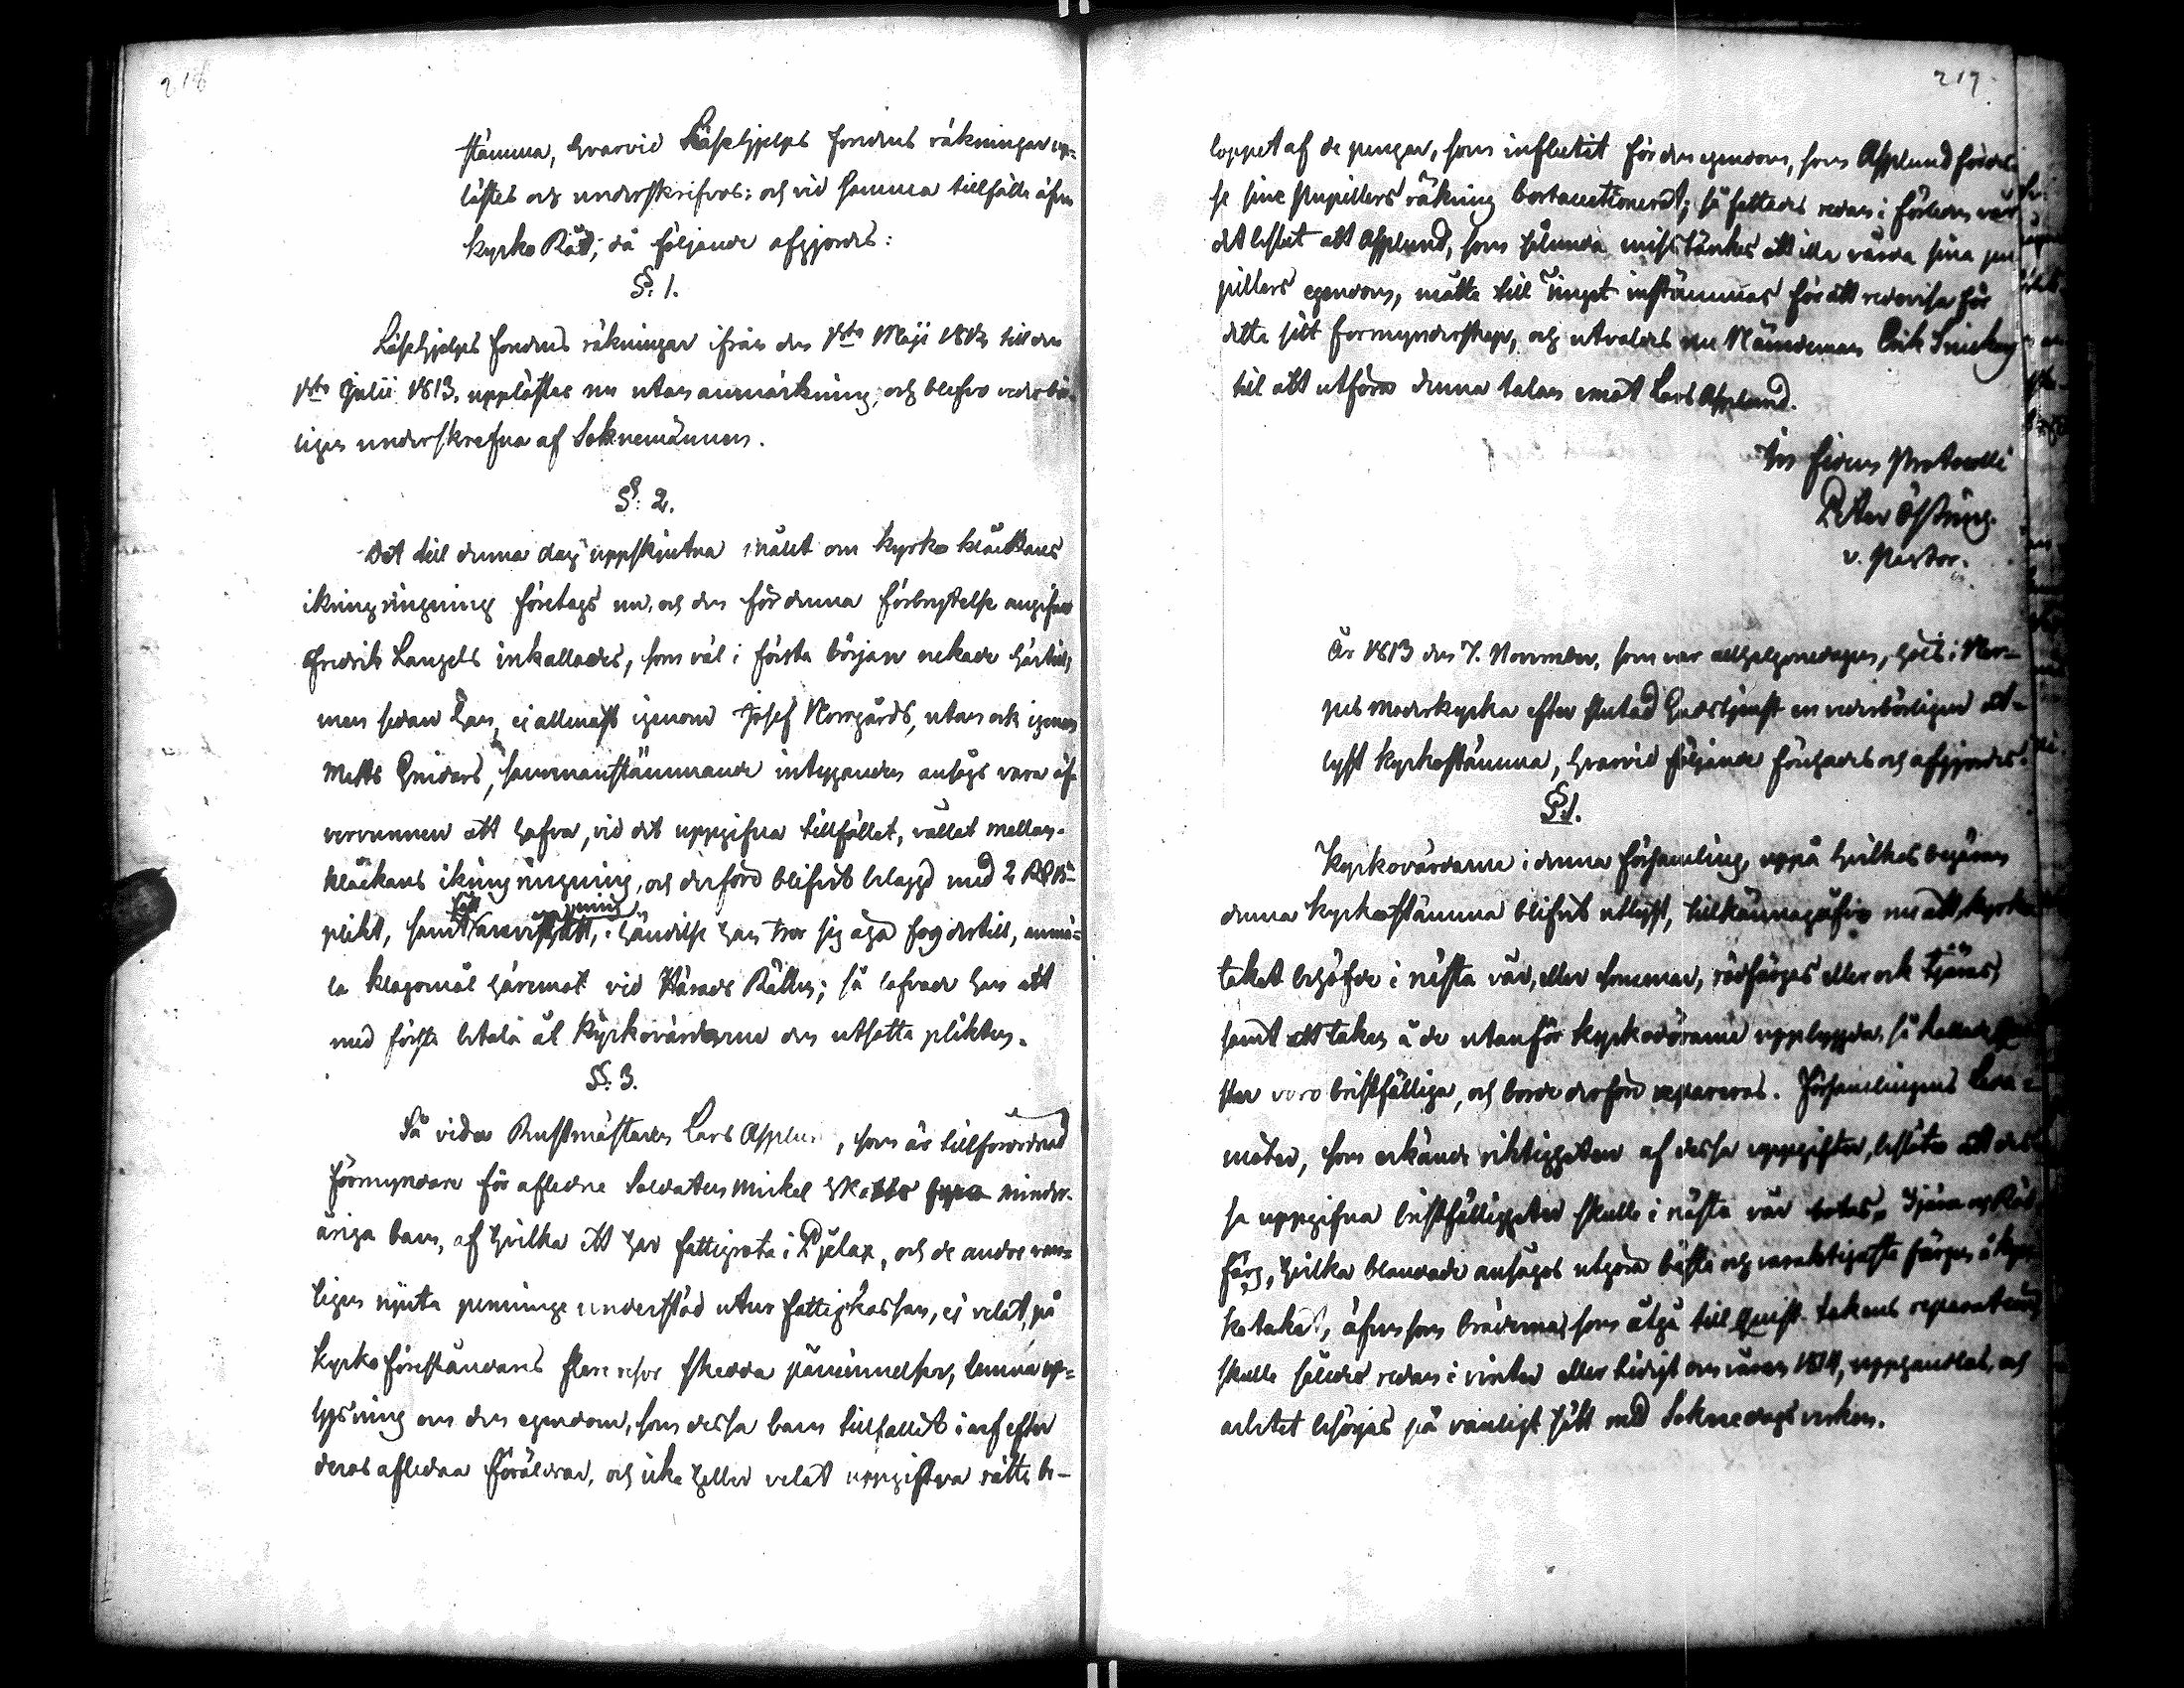 218
stämma, hvarvid Låsehjelps fondens räkningar up-
lästes och underskrefvos: och vid samma tillfälle äfven
kyrko Råd; då följande afgjordes:
§. 1.
Låsehjelps fondens räkningar ifrån den 1sta Maji till den
1sta Julii 1813, upplästes nu utan anmärkning, och blefvo vederbör-
ligen underskrefna af Soknemännen.
§. 2.
Det till denna dag uppskjutna målet om kyrko kläckans
ikringringning företogs nu, och den för denna förbrytelse angifne
Fredrik Langels inkallades, som väl i första början nekade härtill,
men sedan han, ej allenast igenom Josef Norrgårds, utan ock igenom
Matts Gnidars, sammanstämmande intyganden ansågs vara öf-
vervunnen att hafva, vid det uppgifna tillfället, vållat mellan-
kläckans ikringringning, och derföre blifvit belagd med 2 Rd
plikt, samt i händelse han tror sig äga fog dertill, anmä-
la klagomål häremot vid Härads Rätten; så lofvade han att
med första betala åt Kyrkovärdarne den utsatta plikten.
§. 3.
Så vida Rustmästaren Lars Asplund, som är tillförordnad
Förmyndare för aflidne Soldaten Mickel minder-
åriga barn, af hvilka ett har fattigrota i Pjelax, och de andre van-
ligen njuta penninge understöd utur Fattigkassan, ej velat, på
kyrko föreståndarens flere resor skedda påminnelser, lemna up-
lysning om den egendom, som dessa barn tillfallit i arf efter
deras aflidna Föräldrar, och icke heller velat uppgifva rätta be-
219.
loppet af de pengar, som influtit för den egendom, som Asplund för des-
se sine Pupillers räkning bortauctionerat; så fattades redan i förleden vår
det beslut att Asplund, som sålunda misstänkes att illa vårda sina pu
pillers egendom, måtte till Tinget instämmas för att redovisa för
detta sitt Formynderskap, och utvaldes nu Nämndeman Erik
till att utföra denna talan emot Lars Asplund.
In fidem Protocolli
Peter Östring.
v. Pastor.
År 1813 den 7. November, som var allhelgonedagen, hölls i Når-
pes Moderkyrka efter slutad Gudstjenst en vederbörligen ut-
lyst kyrkostämma, hvarvid följande förehades och afgjordes.
§. 1.
Kyrkovärdarne i denna Församling, uppå hvilkas begäran
denna kyrkostämma blifvit utlyst, tillkännagåfvo nu att kyrko
taket behöfde i nästa vår, eller sommar, rödfärgas eller ock tjäras,
samt att taken å de utanför kyrkodörarne uppbyggda, så kallade
voro bristfälliga, och borde derföre repareras. Församlingens Leda-
möter, som erkände riktigheten af dessa uppgifter, beslöto att des-
sa uppgifna bristfälligheter skulle i nästa vår botas. Tjära och Röd
färg, hvilka blandade ansågos utgöra bästa och varaktigaste färgen å kyr-
kotaket, äfvensom bräderna som åtgå till takens reparation
skulle således redan i vinter eller tidigt om våren 1814, upphandlas, och
arbetet besörjas på vanligt sätt med Soknedagsverken.